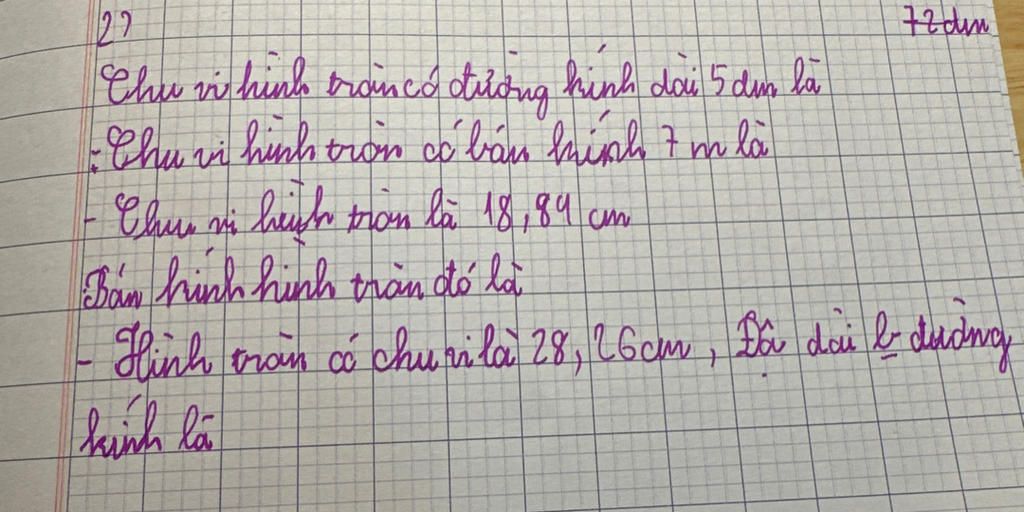 2)
72dm
Chu vi hình tròn có đường kính dài 5 dm là
: Chu vi hình tròn có bán kính 7 m là
- Chu vi hình tròn là 18,84 cm
Bán kính hình tròn đó là
- Hình tròn có chu vi là 28,26cm, Độ dài đường
kính là